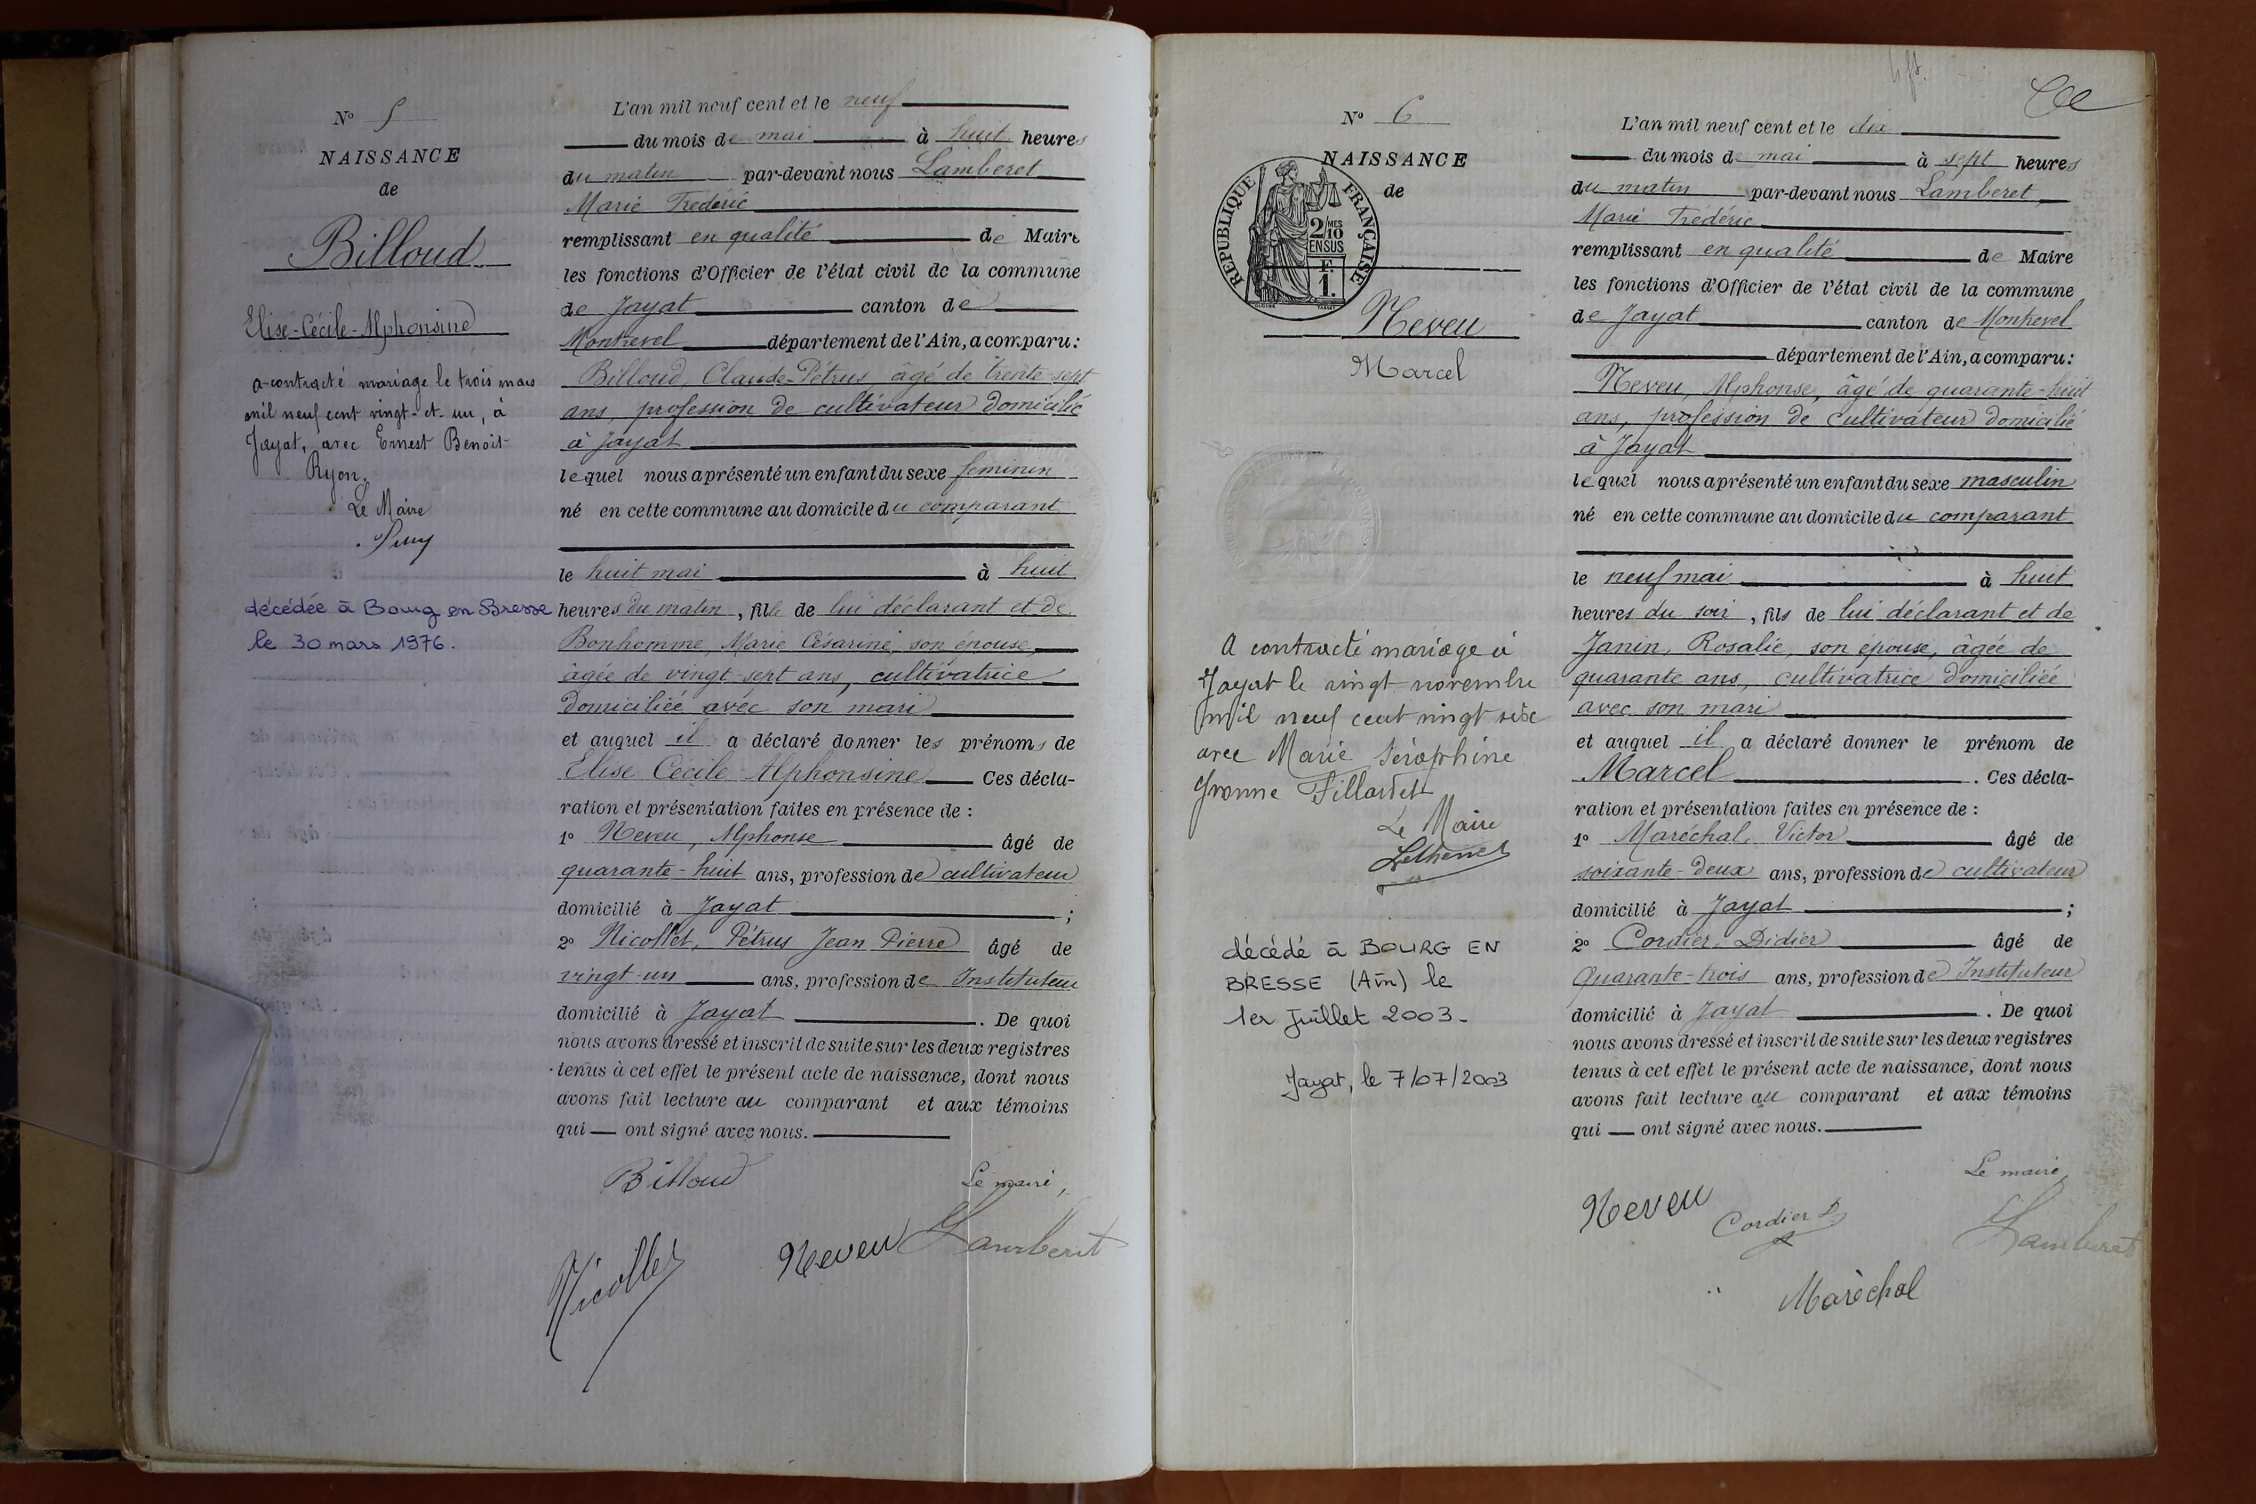 N° 5
NAISSANCE
de
Billoud
Elise-Cécile-Alphonsine
a contracté mariage le trois mars
mil neuf cent vingt-et-un, à
Jayat, avec Ernest Benoit
Ryon.
Le Maire
décédée à Bourg en Bresse
le 30 mars 1976.
L'an mil neuf cent et le neuf
du mois de mai à huit heures
du matin par-devant nous Lamberet
Marie Frédéric
remplissant en qualité de Maire
les fonctions d'Officier de l'état civil de la commune
de Jayat canton de
Montrevel département de l'Ain, a comparu:
Billoud, Claude-Pétrus âgé de trente-sept
ans, profession de cultivateur domicilié
à Jayat
lequel nous a présenté un enfant du sexe feminin
né en cette commune au domicile du comparant
le huit mai à huit
heures du matin, fille de lui déclarant et de
Bonhomme, Marie Césarine, son épouse
âgée de vingt-sept ans, cultivatrice
domiciliée avec son mari
et auquel il a déclaré donner les prénoms de
Elise Cécile Alphonsine Ces décla-
ration et présentation faites en présence de :
1° Neveu, Alphonse âgé de
quarante-huit ans, profession de cultivateur
domicilié à Jayat ;
2° Nicollet, Pétrus Jean Pierre âgé de
vingt-un ans, profession de Instituteur
domicilié à Jayat . De quoi
nous avons dressé et inscrit de suite sur les deux registres
tenus à cet effet le présent acte de naissance, dont nous
avons fait lecture au comparant et aux témoins
qui ont signé avec nous.
Billoud Le maire,
Nicollet Neveu Lamberet
N° 6
NAISSANCE
de
RÉPUBLIQUE FRANÇAISE
2/10 MES
EN SUS
F.
1.
Neveu
Marcel
A contracté mariage à
Jayat le vingt novembre
mil neuf cent vingt six
avec Marie Séraphine
Yvonne Fillardet
Le Maire
décédé à BOURG EN
BRESSE (Ain) le
1er Juillet 2003.
Jayat, le 7/07/2003
L'an mil neuf cent et le dix
du mois de mai à sept heures
du matin par-devant nous Lamberet
Marie Frédéric
remplissant en qualité de Maire
les fonctions d'Officier de l'état civil de la commune
de Jayat canton de Montrevel
département de l'Ain, a comparu:
Neveu, Alphonse, âgé de quarante-huit
ans, profession de cultivateur domicilié
à Jayat
lequel nous a présenté un enfant du sexe masculin
né en cette commune au domicile du comparant
le neuf mai à huit
heures du soir, fils de lui déclarant et de
Janin, Rosalie, son épouse, âgée de
quarante ans, cultivatrice domiciliée
avec son mari
et auquel il a déclaré donner le prénom de
Marcel . Ces décla-
ration et présentation faites en présence de :
1° Maréchal, Victor âgé de
soixante-deux ans, profession de cultivateur
domicilié à Jayat ;
2° Cordier, Didier âgé de
quarante-trois ans, profession de Instituteur
domicilié à Jayat . De quoi
nous avons dressé et inscrit de suite sur les deux registres
tenus à cet effet le présent acte de naissance, dont nous
avons fait lecture au comparant et aux témoins
qui ont signé avec nous.
Le maire,
Neveu Cordier D Lamberet
Maréchal